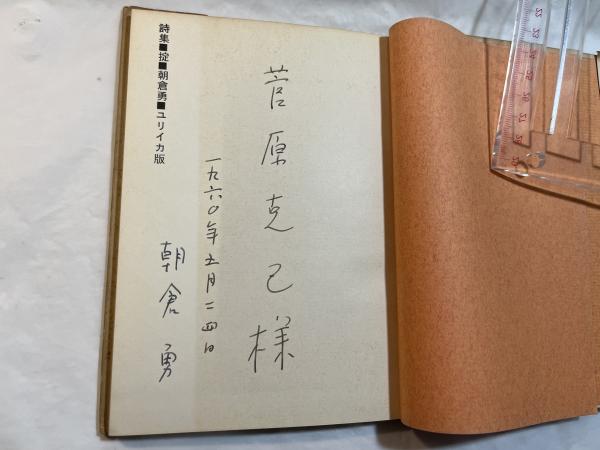 詩集■掟■朝倉勇■ユリイカ版
菅原克己様
一九六〇年五月二四日
朝倉勇
22
23
24
25
26
27